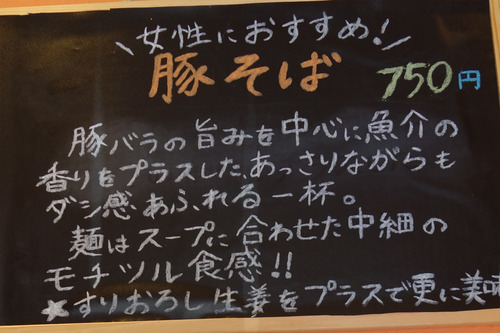 ＼女性におすすめ！／
豚そば 750円
豚バラの旨みを中心に魚介の
香りをプラスした、あっさりながらも
ダシ感あふれる一杯。
麺はスープに合わせた中細の
モチツル食感!!
★すりおろし生姜をプラスで更に美味